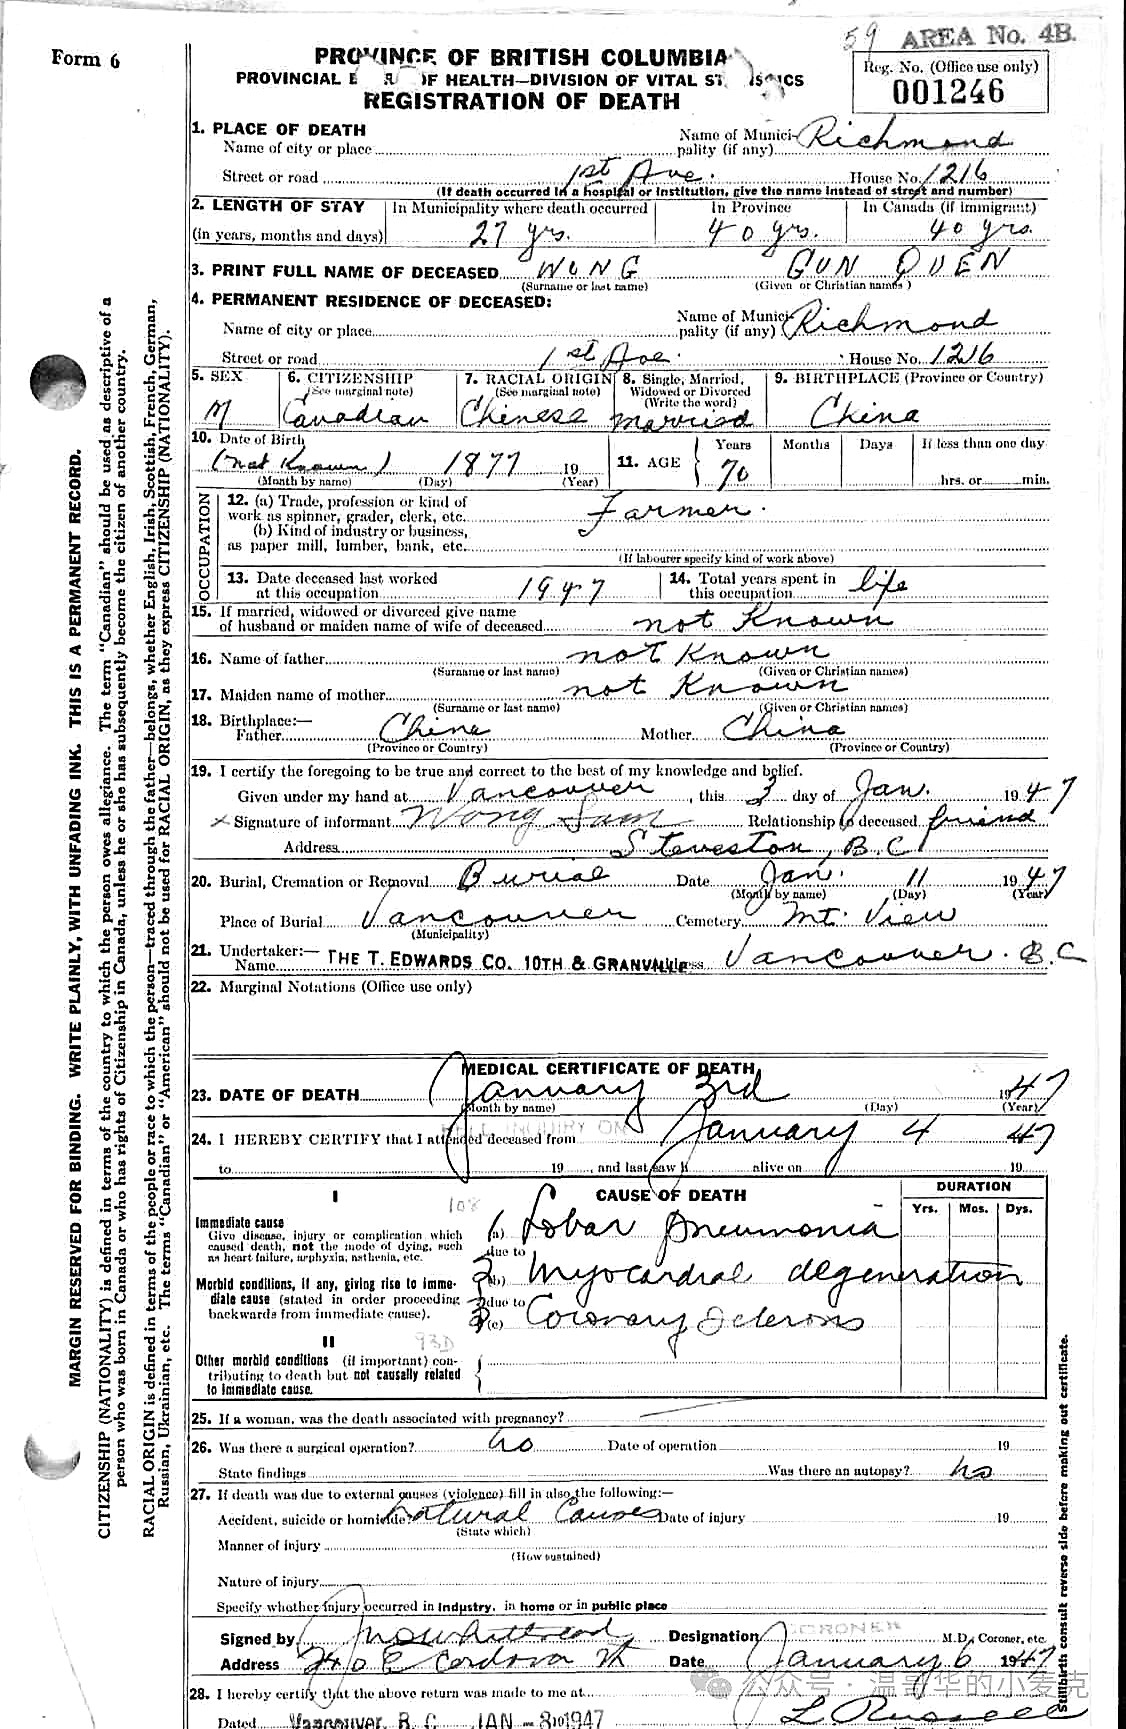 59 AREA No. 4B.
Form 6
PROVINCE OF BRITISH COLUMBIA
PROVINCIAL B R OF HEALTH—DIVISION OF VITAL ST IS CS
REGISTRATION OF DEATH
Reg. No. (Office use only)
001246
1. PLACE OF DEATH
Name of city or place
Name of Municipality (if any) Richmond
Street or road 1st Ave. House No. 1216
(If death occurred in a hospital or institution, give the name instead of street and number)
2. LENGTH OF STAY In Municipality where death occurred In Province In Canada (if immigrant)
(in years, months and days) 27 yrs. 40 yrs. 40 yrs.
3. PRINT FULL NAME OF DECEASED WONG GUN QUEN
(Surname or last name) (Given or Christian names)
4. PERMANENT RESIDENCE OF DECEASED:
Name of city or place
Name of Municipality (if any) Richmond
Street or road 1st Ave. House No. 1216
5. SEX 6. CITIZENSHIP 7. RACIAL ORIGIN 8. Single, Married, 9. BIRTHPLACE (Province or Country)
(See marginal note) (See marginal note) Widowed or Divorced
(Write the word)
M Canadian Chinese Married China
10. Date of Birth 11. AGE Years Months Days If less than one day
(not Known) 1877 19 70
(Month by name) (Day) (Year) hrs. or min.
OCCUPATION
12. (a) Trade, profession or kind of
work as spinner, grader, clerk, etc. Farmer.
(b) Kind of industry or business,
as paper mill, lumber, bank, etc.
(If labourer specify kind of work above)
13. Date deceased last worked 14. Total years spent in
at this occupation 1947 this occupation life
15. If married, widowed or divorced give name
of husband or maiden name of wife of deceased not Known
16. Name of father not Known
(Surname or last name) (Given or Christian names)
17. Maiden name of mother not Known
(Surname or last name) (Given or Christian names)
18. Birthplace:—
Father China Mother China
(Province or Country) (Province or Country)
19. I certify the foregoing to be true and correct to the best of my knowledge and belief.
Given under my hand at Vancouver, this 3 day of Jan. 1947
x Signature of informant Wong Sam Relationship to deceased friend
Address Steveston, B.C.
20. Burial, Cremation or Removal Burial Date Jan. 11 1947
(Month by name) (Day) (Year)
Place of Burial Vancouver Cemetery Mt. View
(Municipality)
21. Undertaker:—
Name THE T. EDWARDS CO. 10TH & GRANVILLE Vancouver. B.C
22. Marginal Notations (Office use only)
MEDICAL CERTIFICATE OF DEATH
23. DATE OF DEATH January 3rd 1947
(Month by name) (Day) (Year)
24. I HEREBY CERTIFY that I attended deceased from INQUIRY ON January 4 47
to 19 , and last saw h alive on 19
I CAUSE OF DEATH DURATION
108 Yrs. Mos. Dys.
Immediate cause
Give disease, injury or complication which
caused death, not the mode of dying, such
as heart failure, asphyxia, asthenia, etc.
1 (a) Lobar pneumonia
due to
Morbid conditions, if any, giving rise to immediate cause (stated in order proceeding
backwards from immediate cause).
2 (b) Myocardial degeneration
due to
3 (c) Coronary Sclerosis
II 93D
Other morbid conditions (if important) contributing to death but not causally related
to immediate cause.
25. If a woman, was the death associated with pregnancy?
26. Was there a surgical operation? no Date of operation 19
State findings Was there an autopsy? no
27. If death was due to external causes (violence) fill in also the following:—
Accident, suicide or homicide? Natural Causes Date of injury 19
(State which)
Manner of injury
(How sustained)
Nature of injury
Specify whether injury occurred in industry, in home or in public place
Signed by Designation CORONER M.D., Coroner, etc.
Address 240 E Cordova St Date January 6 1947
28. I hereby certify that the above return was made to me at
Dated Vancouver, B. C. JAN - 8 1947 L. Russell
MARGIN RESERVED FOR BINDING. WRITE PLAINLY, WITH UNFADING INK. THIS IS A PERMANENT RECORD.
CITIZENSHIP (NATIONALITY) is defined in terms of the country to which the person owes allegiance. The term "Canadian" should be used as descriptive of a
person who was born in Canada or who has rights of Citizenship in Canada, unless he or she has subsequently become the citizen of another country.
RACIAL ORIGIN is defined in terms of the people or race to which the person—traced through the father—belongs, whether English, Irish, Scottish, French, German,
Russian, Ukrainian, etc. The terms "Canadian" or "American" should not be used for RACIAL ORIGIN, as they express CITIZENSHIP (NATIONALITY).
Stillbirths consult reverse side before making out certificate.
公众号 · 温哥华的小麦克